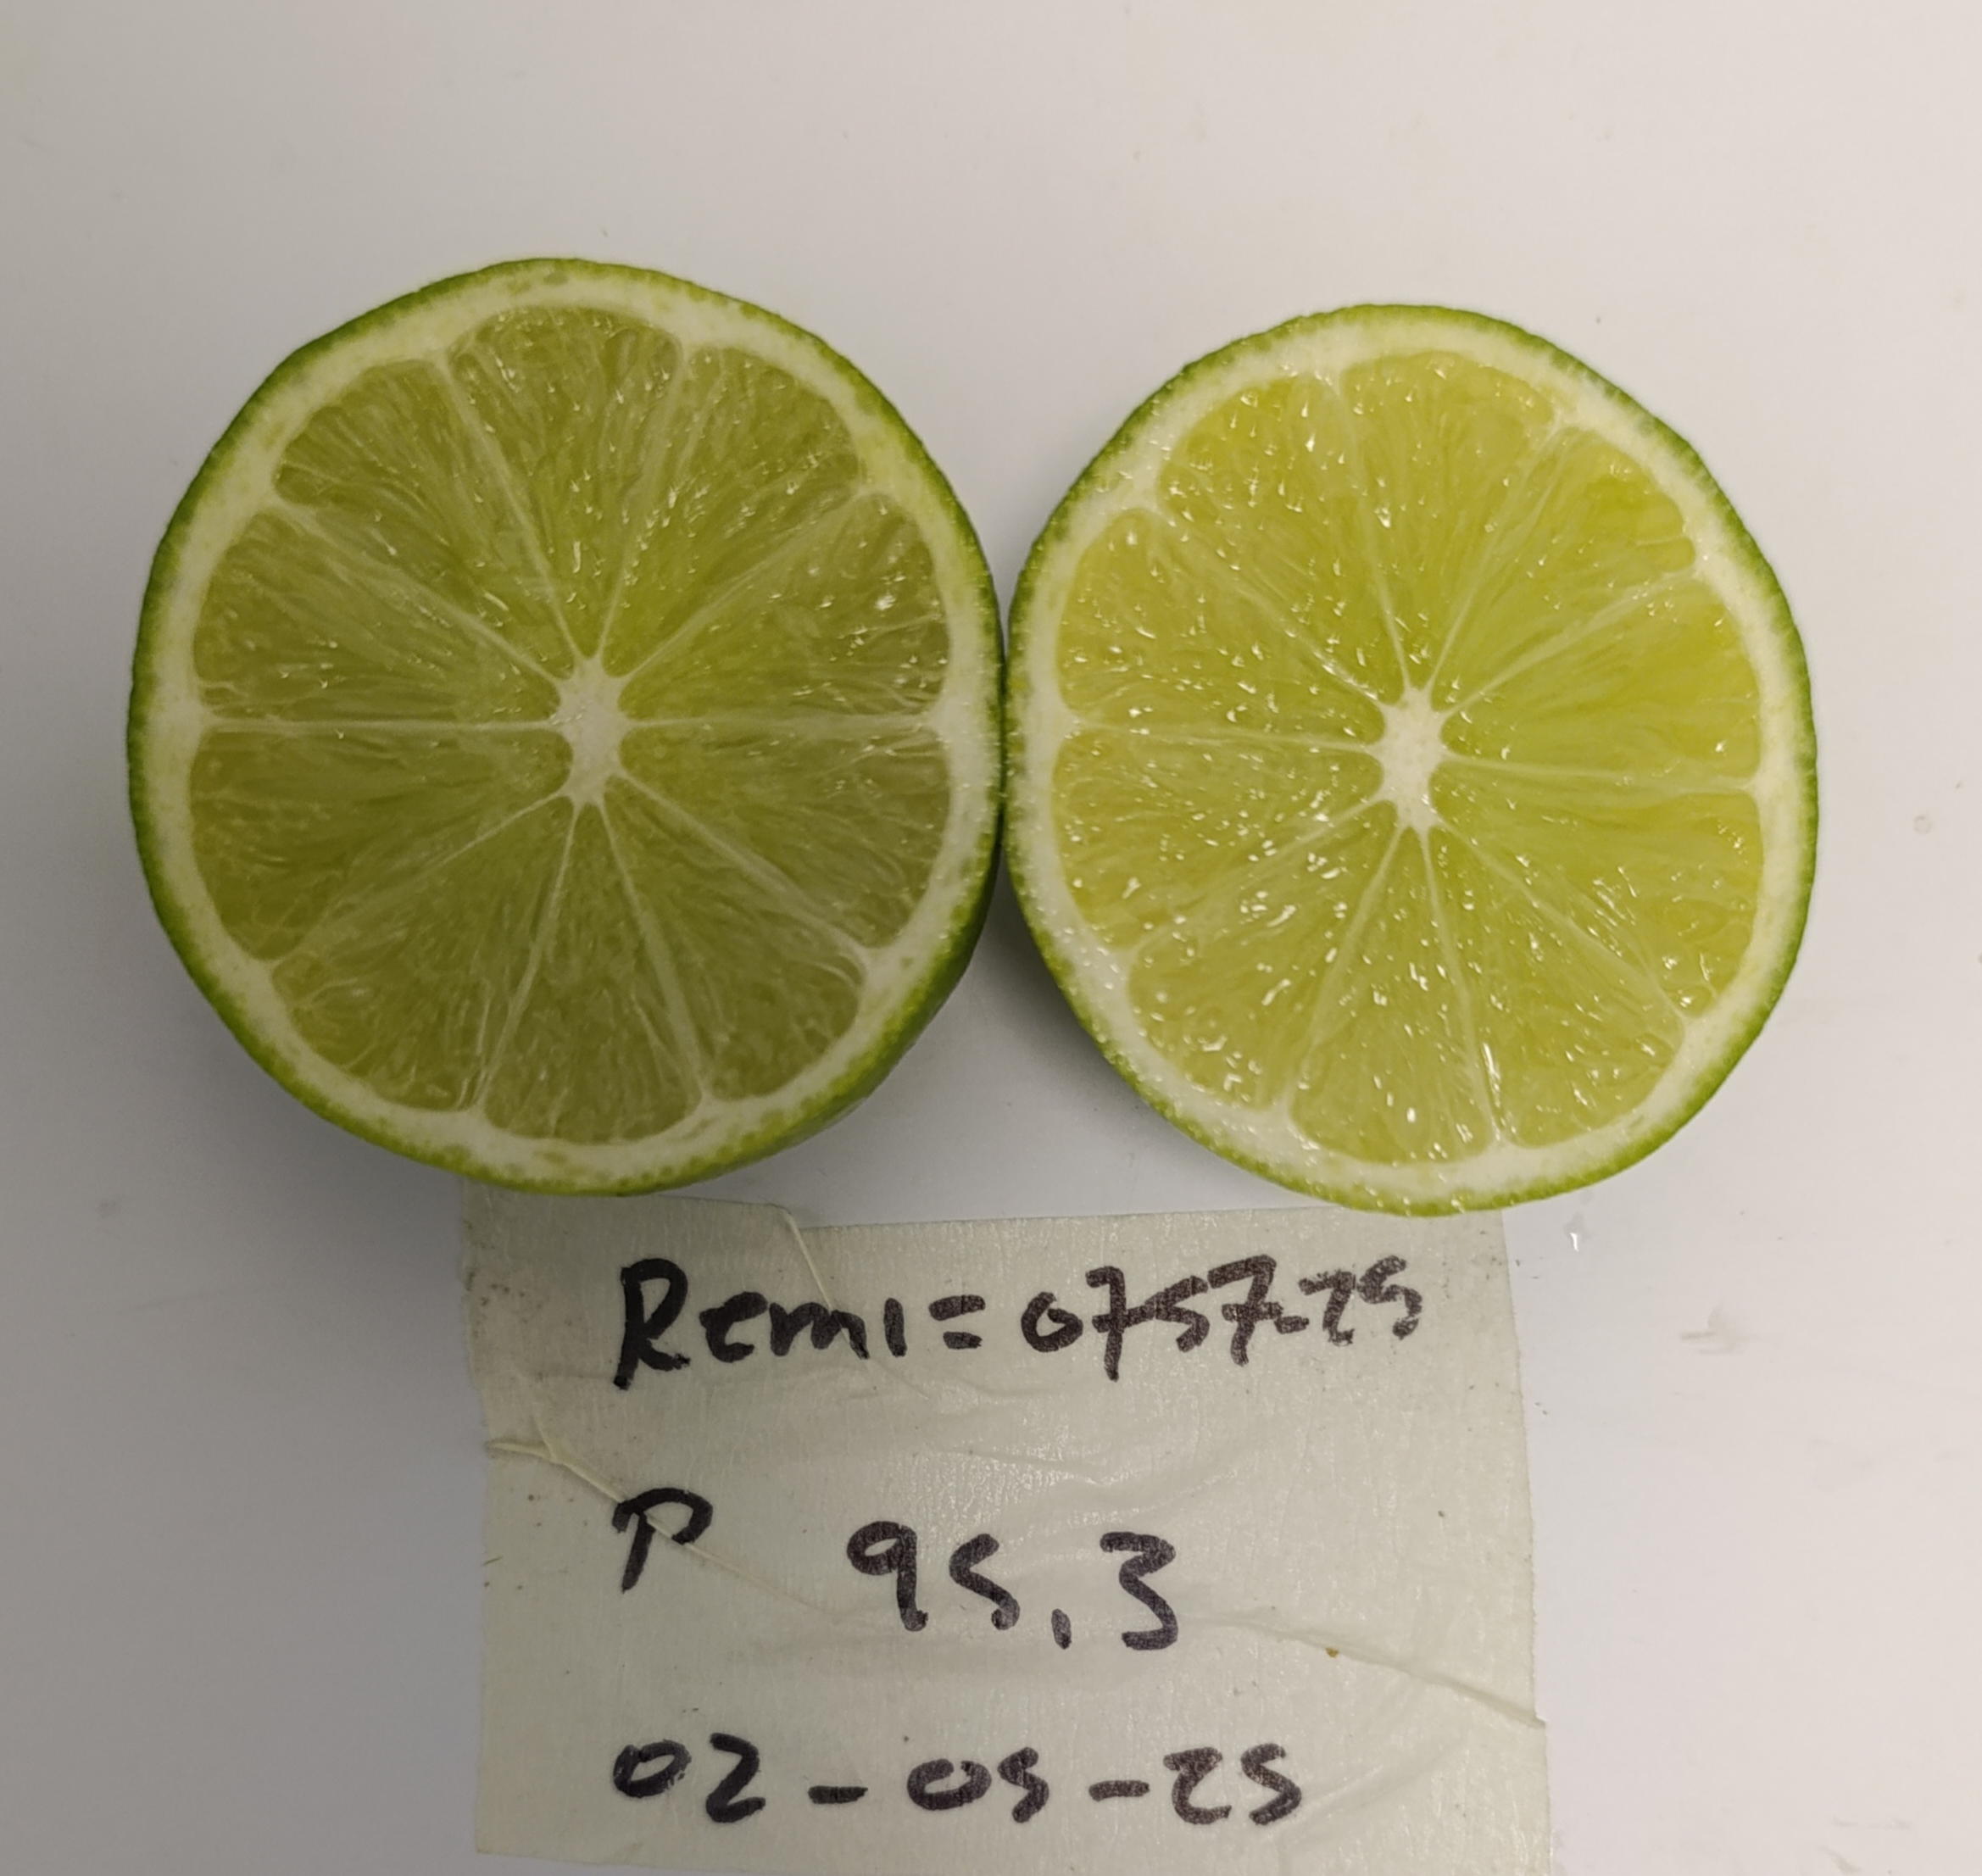 Remi=0757-25
P 95.3
02-05-25